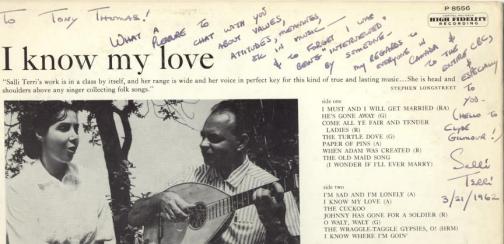 To TONY THOMAS!
P 8556
HIGH FIDELITY
RECORDING
WHAT A PLEASURE TO CHAT WITH YOU
ABOUT VALUES,
ATTITUDES, MEANINGS,
ETC IN MUSIC —
& TO FORGET I WAS
BEING "INTERVIEWED"
BY SOMEONE.
MY REGARDS TO
EVERYONE IN CANADA &
TO THE ENTIRE CBC,
& ESPECIALLY
TO
YOU.
(HELLO TO
CLYDE
GILMOUR!)
Salli
Terri
3/21/1962
I know my love
"Salli Terri's work is in a class by itself, and her range is wide and her voice in perfect key for this kind of true and lasting music...She is head and
shoulders above any singer collecting folk songs."
STEPHEN LONGSTREET
side one
I MUST AND I WILL GET MARRIED (RA)
HE'S GONE AWAY (G)
COME ALL YE FAIR AND TENDER
LADIES (R)
THE TURTLE DOVE (G)
PAPER OF PINS (A)
WHEN ADAM WAS CREATED (R)
THE OLD MAID SONG
(I WONDER IF I'LL EVER MARRY)
side two
I'M SAD AND I'M LONELY (A)
I KNOW MY LOVE (A)
THE CUCKOO
JOHNNY HAS GONE FOR A SOLDIER (R)
O WALY, WALY (G)
THE WRAGGLE-TAGGLE GYPSIES, O! (HRM)
I KNOW WHERE I'M GOIN'